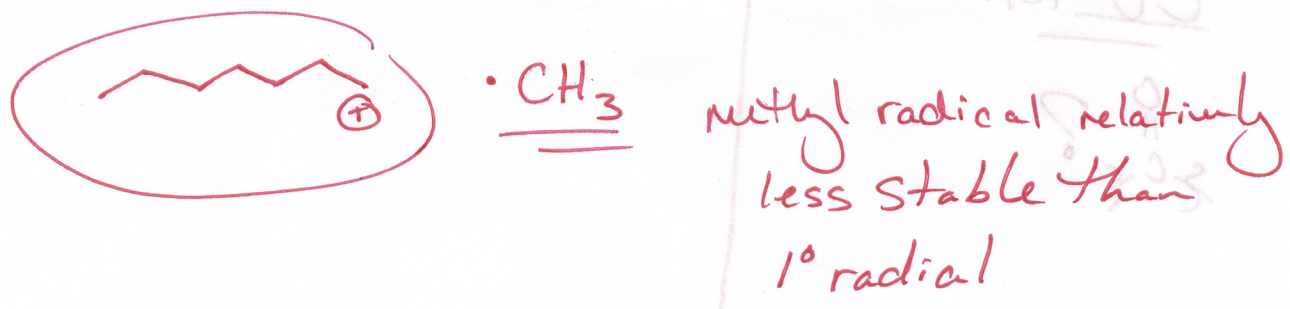 ⊕
• CH3
methyl radical relatively
less stable than
1° radial